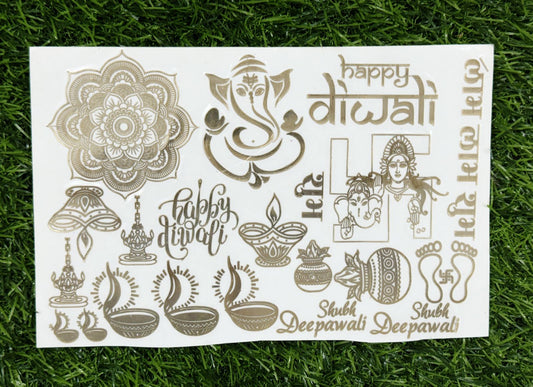 happy
diwali
शुभ लाभ लाभ
शुभ
happy
diwali
Shubh
Deepawali
Shubh
Deepawali